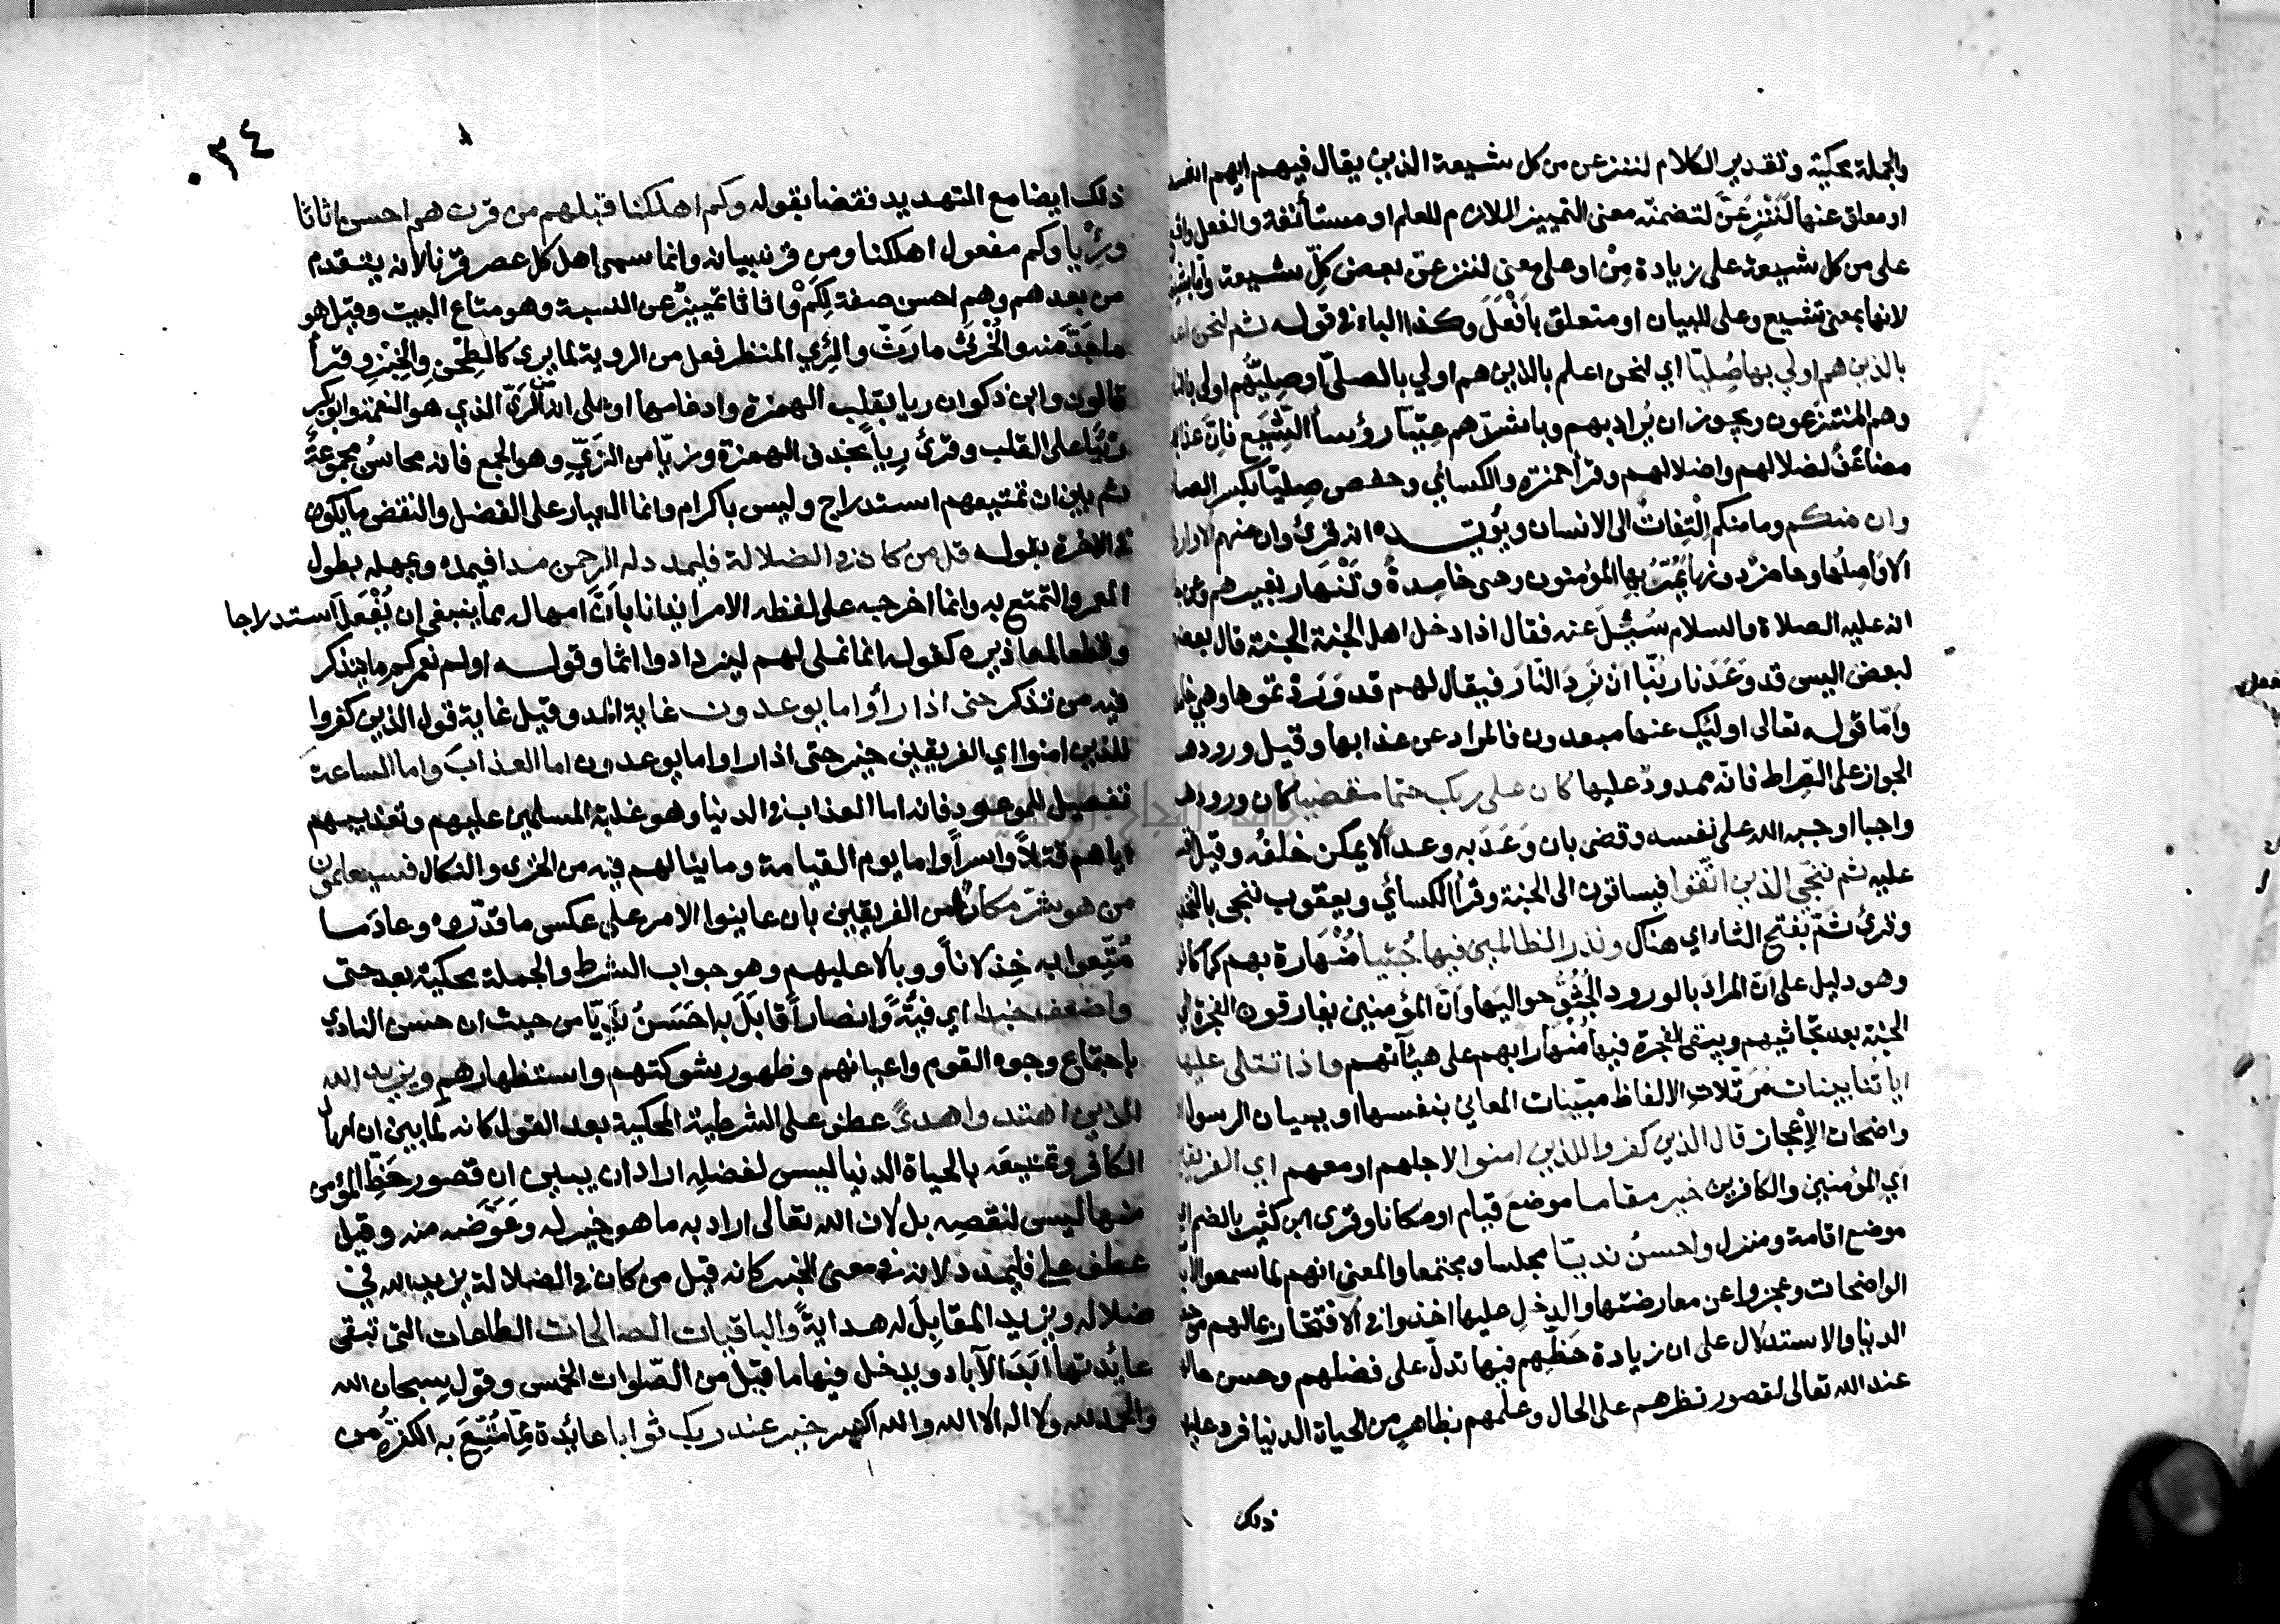 والجملة محكية وتقدير الكلام لننزعن من كل شيعة الذين يقال فيهم ايهم
او معلق عنها لَنَنْزِعَنَّ لتضمنه معنى التمييز اللازم للعلم او مستأنفة والفعل
على من كل شيعة على زيادة مِنْ او على معنى لننزعن بعض كلِّ شيعة
لانها بمعنى تشيع وعلى للبيان او متعلق بأَفْعَلَ وكذا الباء في قوله ثم لنحن
بالذين هم اولي بها صُلِيّا اي لنحن اعلم بالذين هم اولي بالصلىّ او صِليُّهم اولى
وهم المنتزعون ويجوز ان يُراد بهم وباشدّهم عتيا رؤسأ الشِّيَع فانّ
مضاعَفٌ لضلالهم واضلالهم وقرأ حمزة والكسائي وحفص صِليّا بكسر
وان منكم وما منكم اِلْتِفاتٌ الى الانسان ويؤيّده انه قرئ وان منهم
الا واصِلُها وحاضرٌ دونها يَمُرّ بها المؤمنون وهى خامِدةٌ وتَنْهار بغيرهم وعن
انه عليه الصلاة والسلام سُئِلَ عنه فقال اذا دخل اهل الجنة الجنة قال
لبعض اليس قد وَعَدَنا ربّنا ان نَرِدَ النّارَ فيقال لهم قد وَرَدْتموها وهي
وامّا قوله تعالى اولئِك عنها مبعدون فالمراد عن عذابها وقيل
الجواز على الصِّراط فانّه ممدودٌ عليها كان على ربك حتما مقضيا كان
واجبا اوجبه الله على نفسه وقضى بان وَعَدَ به وعدا لا يمكن خلفُه وقيل
عليه ثم ننجّى الذين اتّقوا فيساقون الى الجنة وقرأ الكسائي ويعقوب ننجى
وقرئ ثَمّ بفتح الثاء اي هناك ونذر الظالمين فيها جُثيا مُنْهارة بهم كما
وهو دليل على انّ المرادَ بالورود الجُثُوُّ حواليها وانّ المؤمنين يفارقون الفجرة
الجنة بعد تجاثيهم ويبقى الفجرة فيها مُنهارا بهم على هيآتهم واذا تتلى
اياتنا بينات مُرَتّلاتِ الالفاظ مبيّنات المعاني بنفسها او ببيان الرسول
واضحات الاِعْجاز قال الذين كفروا للذين امنوا لاجلهم او معهم اي
اي المؤمنين والكافرين خير مقاما موضعَ قيام او مكانا وقرى ابن كثير بالضم
موضع اقامة ومنزل واحسنُ نديّا مجلسا ومجتمعا والمعنى انهم لما سمعوا
الواضحات وعجزوا عن معارضتها والدخلِ عليها اخذوا في الافتخار بمالهم
الدنيا والاستدلال على ان زيادة حَظّهم فيها تدلّ على فضلهم وحسن
عند الله تعالى لقصور نظرهم على الحال وعلمهم بظاهرٍ من الحياة الدنيا فرد
ذلك
٣٤
ذلك ايضا مع التهديد نقضا بقوله وكم اهلكنا قبلهم من قرن هم احسن اثاثا
ورِئْيا وكم مفعول اهلكنا ومن قرن بيانه وانما سمى اهل كل عصر قرنا لانه يتقدم
من بعدهم وهم احسن صفة لكَمْ واثاثا تمييزٌ عن النسبة وهو متاع البيت وقيل هو
ماجَدَّ منه والخُرْثِىّ مارَثّ والرِئي المنظر فعل من الروية لما يرى كالطِحْن والخِبْزِ وقرأ
قالون وابن ذكوان ريا بقلب الهمزة وادغامها او على انه من الرَىّ الذي هو النعمة وابو بكر
ريْئا على القلب وقرئ رِياً بحذف الهمزة وزيّا من الزَيِّ وهو الجمع فانه محاسنُ مجموعةٌ
ثم بين ان تمتيعهم استدراج وليس باكرام وانما العيار على الفضل والنقض ما يكون
في الاخرة بقوله قل من كان في الضلالة فليمدد له الرحمن مدا فيمده ويمهله بطول
العمر والتمتع به وانما اخرجه على لفظه الامر ايذانا باَنَّ امهاله مما ينبغى ان يُفْعَل استدراجا
وقطعا لمعاذيره كقوله انما نملى لهم ليزدادوا اثما وقوله اولم نعمركم ما يتذكر
فيه من تذكر حتى اذا رأوا ما يوعدون غاية المد وقيل غاية قول الذين كفروا
للذين امنوا اي الفريقين خير حتى اذا راوا ما يوعدون اما العذابَ واما الساعة
تفصيل للموعود فانه اما العذاب في الدنيا وهو غلبة المسلمين عليهم وتعذيبهم
اياهم قتلاً واسراً واما يوم القيامة وما ينالهم فيه من الخزى والنكال فسيعلمون
من هو شرّ مكانا من الفريقين بان عاينوا الامر على عكس ما قدّروه وعاد ما
مُتّعوا به خِذلاناً ووبالا عليهم وهو جواب الشرط والجملة محكية بعد حتى
واضعف جندا اي فيئةً وانصاراً قابَلَ به احَسَنُ نديّا من حيث ان حسن النادي
باجتماع وجوه القوم واعيانهم وظهور شوكتهم واستظهارهم ويزيد الله
الذين اهتدوا هدىً عطف على الشرطية المحكية بعد القول كانه لما بين ان امهال
الكافر وتمتيعَه بالحياة الدنيا ليس لفضلِه اراد ان يبين ان قصور حَظِّ المؤمن
منها ليس لنقصِه بل لان الله تعالى اراد به ما هو خير له وعَوّضه منه وقيل
عطف على فليمدد لانه في معنى الخبر كانه قيل من كان في الضلالة يزيد الله في
ضلاله ويزيد المقابِلَ له هدايةً والباقيات الصالحات الطاعات التى تبقى
عائدتها اَبَدَ الآباد ويدخل فيها ما قيل من الصّلوات الخمس وقول سبحان الله
والحمد لله ولا اله الا الله والله اكبر خير عند ربك ثوابا عائدة مِمّا مُتِّعَ به الكفرةُ من